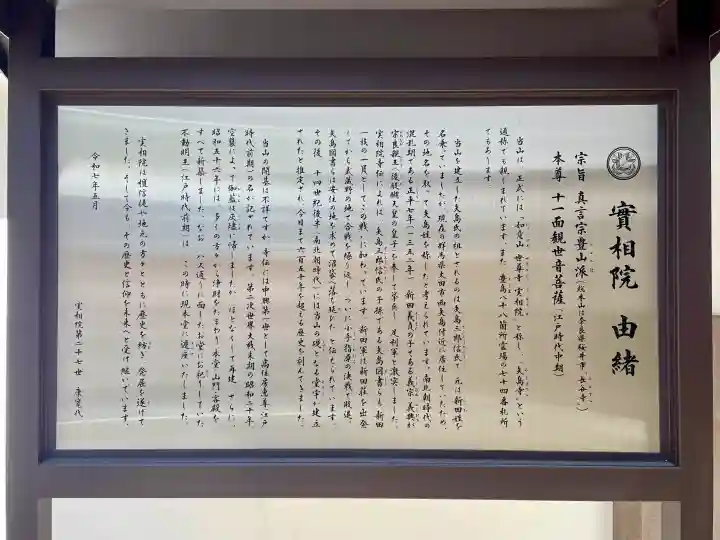 實相院 由緒
宗旨 真言宗豊山派(総本山は奈良県桜井市・長谷寺)
本尊 十一面観世音菩薩(江戸時代中期)
当山は、正式には「和愛山 世尊寺 實相院」と称し、「矢島寺」という
通称でも親しまれています。また、豊島八十八箇所霊場の七十四番札所
でもあります。
当山を建立した矢島氏の祖とされるのは矢島三郎信氏で、元は新田姓を
名乗っていましたが、現在の群馬県太田市西矢島付近に居住していたため、
その地名を取って矢島姓を称したと考えられています。南北朝時代の
混乱期である正平七年(一三五二年)、新田義貞の子である義宗、義興が
宗良親王(後醍醐天皇の皇子)を奉じて挙兵し、足利軍と激突しました。
実相院寺伝によれば、矢島三郎信氏の子孫である矢島図書らも、新田
一族の一員としてこの戦いに加わっています。新田軍は新田荘を出発
してから武蔵野の地で合戦を繰り返し、ついに小手指原の決戦で敗退。
矢島図書らは安住の地を求めて沼袋へ落ち延びた、と伝えられています。
その後、十四世紀後半(南北朝時代)には当山の礎となる堂宇が建立
されたと推定され、今日まで六百五十年を超える歴史を刻んできました。
当山の開基は不詳ですが、寺伝には中興第一世として高住房恵尊(江戸
時代前期)の名が記されています。第二次世界大戦末期の昭和二十年、
空襲によって伽藍は灰燼に帰しましたが、ほどなくして再建。さらに、
昭和五十六年には、多くの方々から浄財をたまわり、本堂、山門、客殿を
すべて新築しました。なお、バス通りに面したお堂にお祀りしていた
不動明王(江戸時代前期)は、この時に現本堂に遷座いたしました。
実相院は檀信徒や地元の方々とともに歴史を紡ぎ、発展を遂げて
きました。そして今も、その歴史と信仰を未来へと受け継いでいます。
令和七年五月
実相院第二十七世 康寛代